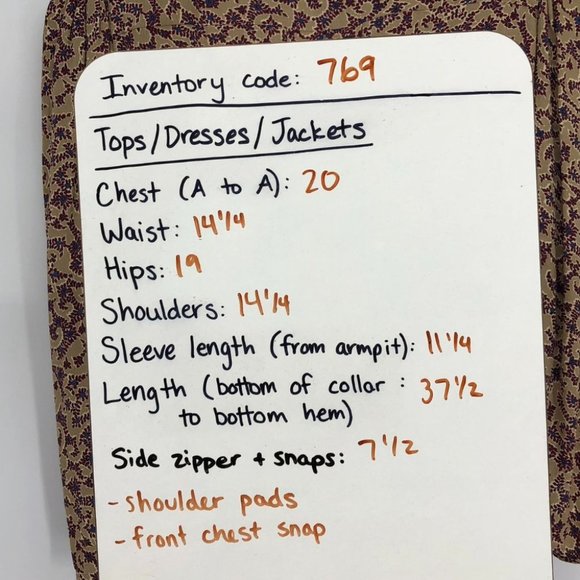 Inventory code: 769
Tops/Dresses/Jackets
Chest (A to A): 20
Waist: 14 1/4
Hips: 19
Shoulders: 14 1/4
Sleeve length (from armpit): 11 1/4
Length (bottom of collar : 37 1/2
to bottom hem)
Side zipper + snaps: 7 1/2
- shoulder pads
- front chest snap